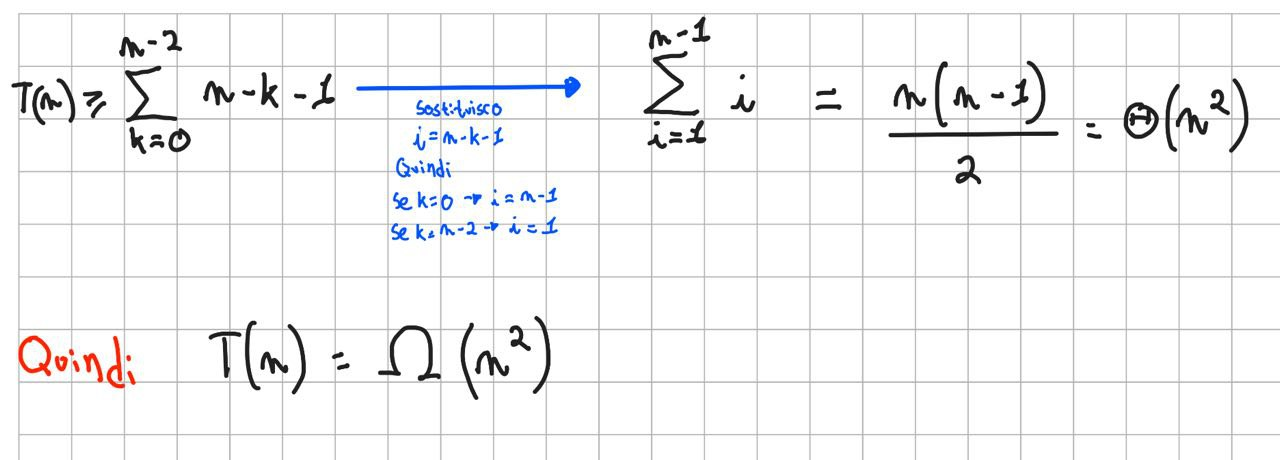 T(n) ≥ ∑_{k=0}^{n-2} n-k-1 → ∑_{i=1}^{n-1} i = n(n-1)/2 = Θ(n²)
Sostituisco
i=n-k-1
Quindi
Se k=0 → i=n-1
Se k=n-2 → i=1
Quindi T(n) = Ω(n²)